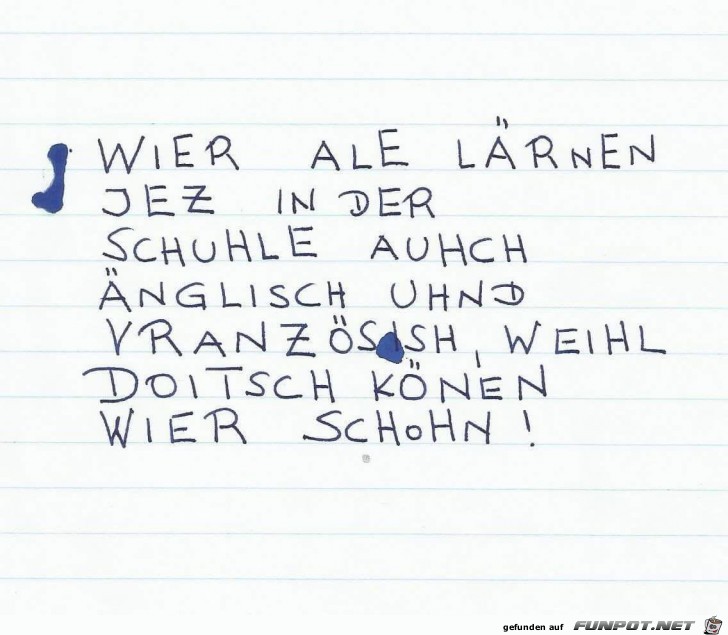 WIER ALE LÄRNEN
JEZ IN DER
SCHUHLE AUHCH
ÄNGLISCH UHND
VRANZÖSISH, WEIHL
DOITSCH KÖNEN
WIER SCHOHN!
gefunden auf FUNPOT.NET